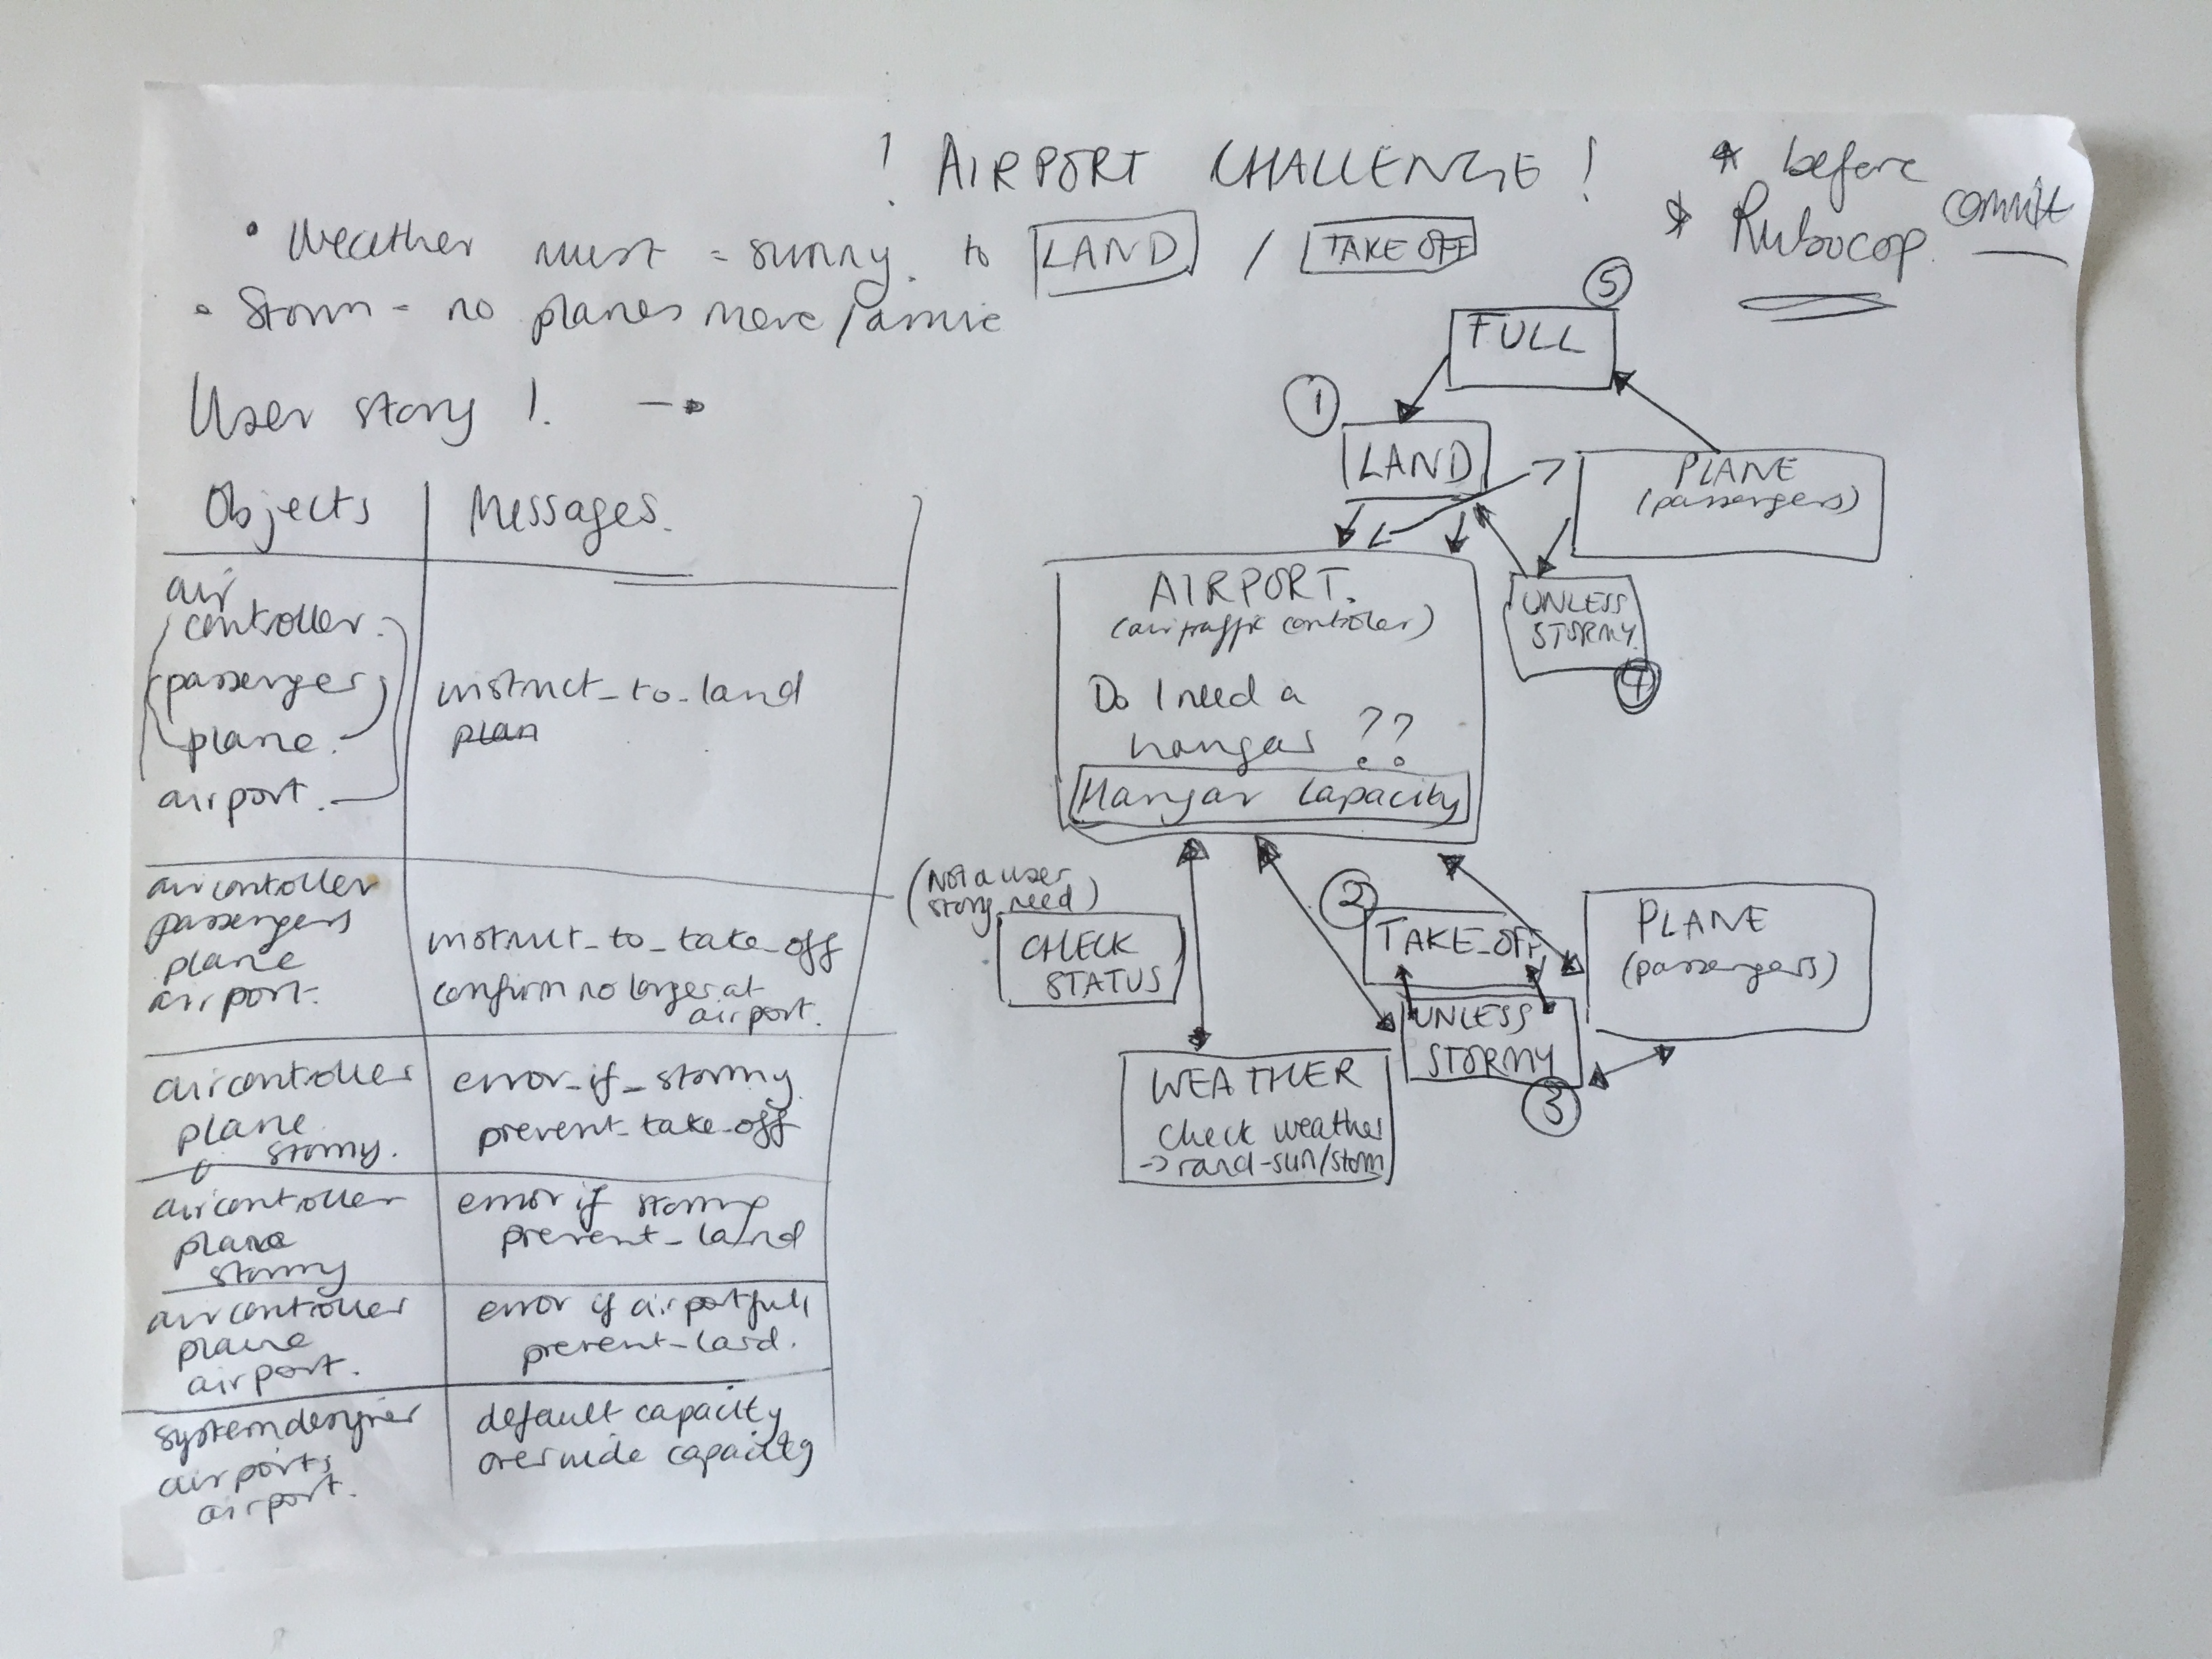 ! AIRPORT CHALLENGE !
* before
* Rubocop commit
• Weather must = sunny. to LAND / TAKE OFF
• Storm - no planes move / arrive
User story 1. →
Objects | Messages.
air
controller.
passenger
plane.
airport.
instruct_to_land
plan
aircontroller
passengers
plane
airport.
instruct_to_take_off
confirm no longer at
airport.
aircontroller
plane
stormy.
error_if_stormy
prevent_take_off
aircontroller
plane
stormy
error if stormy
prevent_land
aircontroller
plane
airport.
error if airport full
prevent_land.
system designer
airports
airport.
default capacity
override capacity
5
FULL
1
LAND
PLANE
(passengers)
UNLESS
STORMY
4
AIRPORT.
(air traffic controler)
Do I need a
hangar ??
Hangar Capacity
(Not a user
story need)
CHECK
STATUS
2
TAKE_OFF
PLANE
(passengers)
UNLESS
STORMY
3
WEATHER
check weather
→ rand-sun/storm